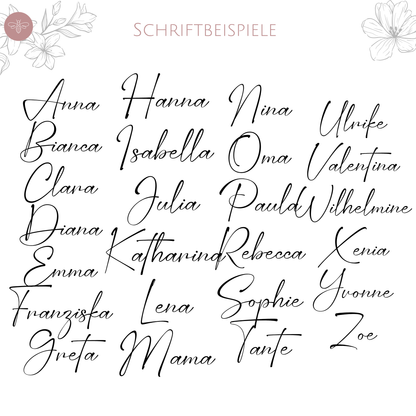 SCHRIFTBEISPIELE
Anna
Bianca
Clara
Diana
Emma
Franziska
Greta
Hanna
Isabella
Julia
Katharina
Lena
Mama
Nina
Oma
Paula
Rebecca
Sophie
Tante
Ulrike
Valentina
Wilhelmine
Xenia
Yvonne
Zoe